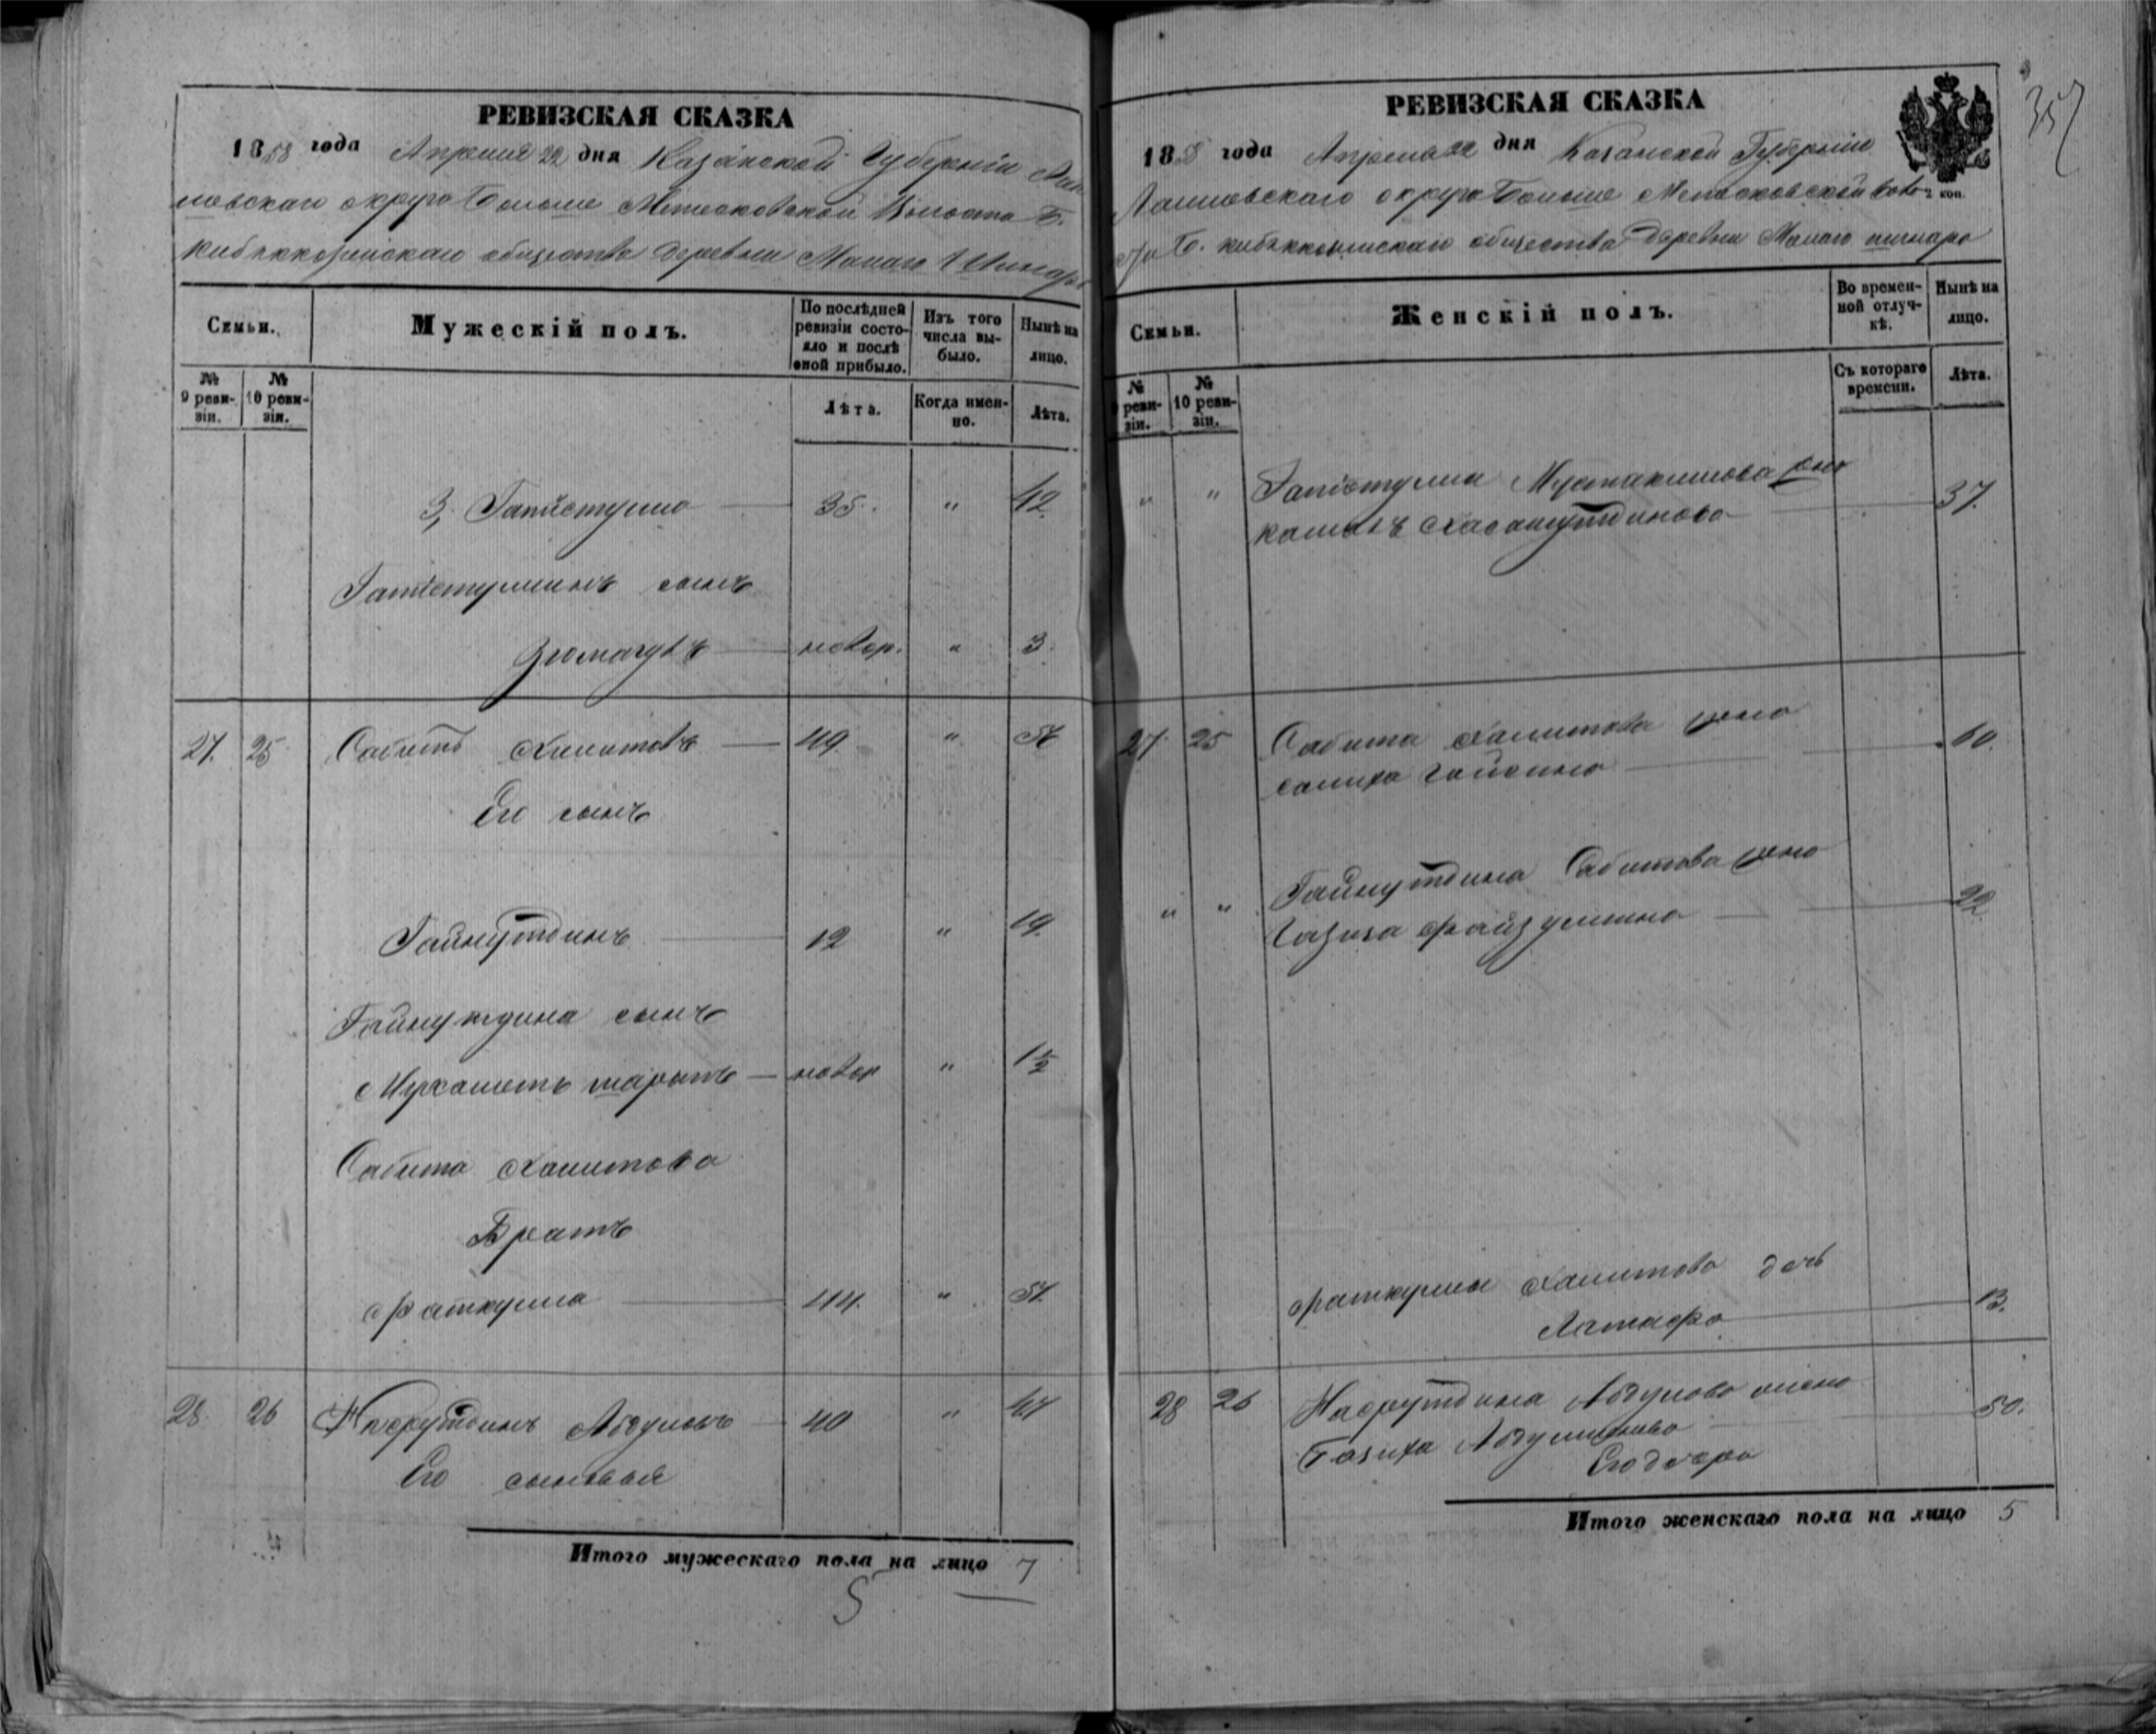 РЕВИЗСКАЯ СКАЗКА
1858 года Апреля 22 дня Казанской Губернии Лаи
шевскаго округа Больше Метесковской Волости Б.
деревни Малаго Шинара
Семьи.
Мужескій полъ.
По послѣдней ревизіи состояло и послѣ оной прибыло.
Изъ того числа выбыло.
Нынѣ на лицо.
№ 9 ревизіи.
№ 10 ревизіи.
Лѣта.
Когда именно.
Лѣта.
3, 35. " 42.
сынъ
новор. " 3.
27. 25 Сабитъ Хамитовъ 49 "
Его сынъ
Гайнутдинъ 12 " 19.
Гайнутдина сынъ
Мухаметъ шарыпъ новор " 1½
Сабита Хамитова
Братъ
Фаткулла 44. " 51.
28. 26 Насрутдинъ Абдуловъ 40 " 47
Его сыновья
Итого мужескаго пола на лицо 7
5
РЕВИЗСКАЯ СКАЗКА
357
1858 года Апреля 22 дня Казанской Губернии
Лаишевскаго округа Больше Метесковской воло
2 коп.
сти Б. общества деревни Малаго шинара
Семьи.
Женскій полъ.
Во временной отлучкѣ.
Нынѣ на лицо.
№ 9 ревизіи.
№ 10 ревизіи.
Съ котораго времени.
Лѣта.
" " Мустакимова
Хасанутдинова 37.
27. 25 Сабита Хамитова жена
салиха гайсина 60.
" " Гайнутдина Сабитова жена
Газиза файзуллина 22
Фаткуллы Хамитова дочь
Латифа 13.
28 26 Насрутдина Абдулова жена
Базиха 50.
Его дочери
Итого женскаго пола на лицо 5